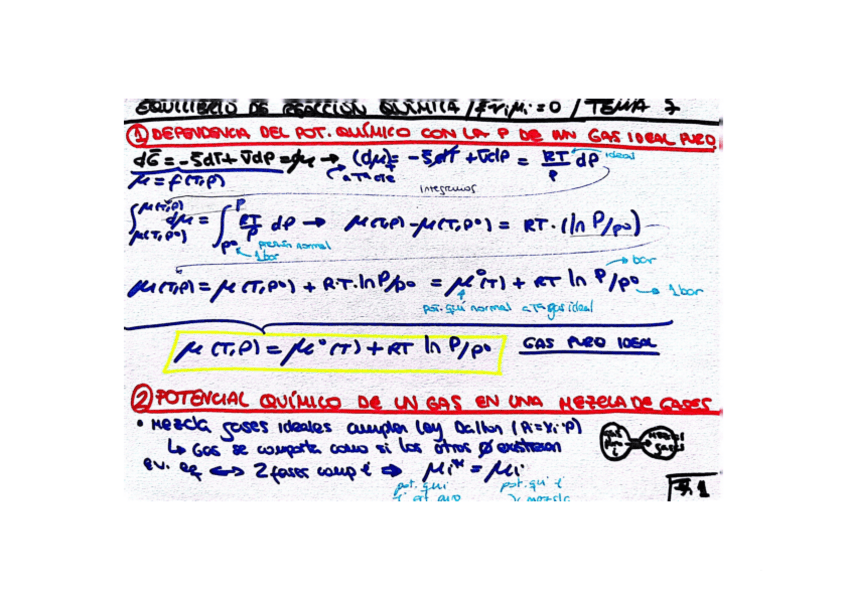 EQUILIBRIO DE REACCIÓN QUÍMICA / Σνiμi = 0 / TEMA 5
① DEPENDENCIA DEL POT. QUÍMICO CON LA P DE UN GAS IDEAL PURO
dG̅ = -S̅dT + V̅dP = dμ → (dμ) = -S̅dT + V̅dP = RT/P dP ideal
a T cte
μ = f(T,P)
integramos
∫μ(T,P°)^μ(T,P) dμ = ∫P°^P RT/P dP → μ(T,P) - μ(T,P°) = RT · (ln P/P°)
presión normal
1bar
bar
μ(T,P) = μ(T,P°) + R·T·ln P/P° = μ°(T) + RT ln P/P° → 1bar
pot. quí normal a T gas ideal
μ(T,P) = μ°(T) + RT ln P/P° GAS PURO IDEAL
② POTENCIAL QUÍMICO DE UN GAS EN UNA MEZCLA DE GASES
• Mezcla gases ideales cumplen ley Dalton (Pi = xi·P)
↳ Gas se comporta como si los otros Ø existieran
eq ↔ 2 fases comp i ⇒ μi* = μi
pot. quí pot. quí i
mezcla
5.1